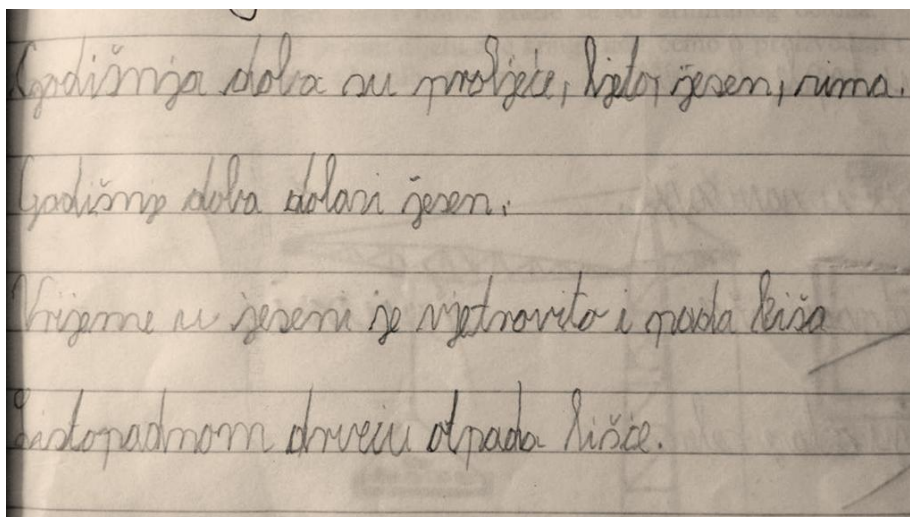 Godišnja doba su proljeće, ljeto, jesen, zima.
Godišnje doba dolazi jesen.
Vrijeme u jeseni je vjetrovito i pada kiša
Listopadnom drveću otpada lišće.